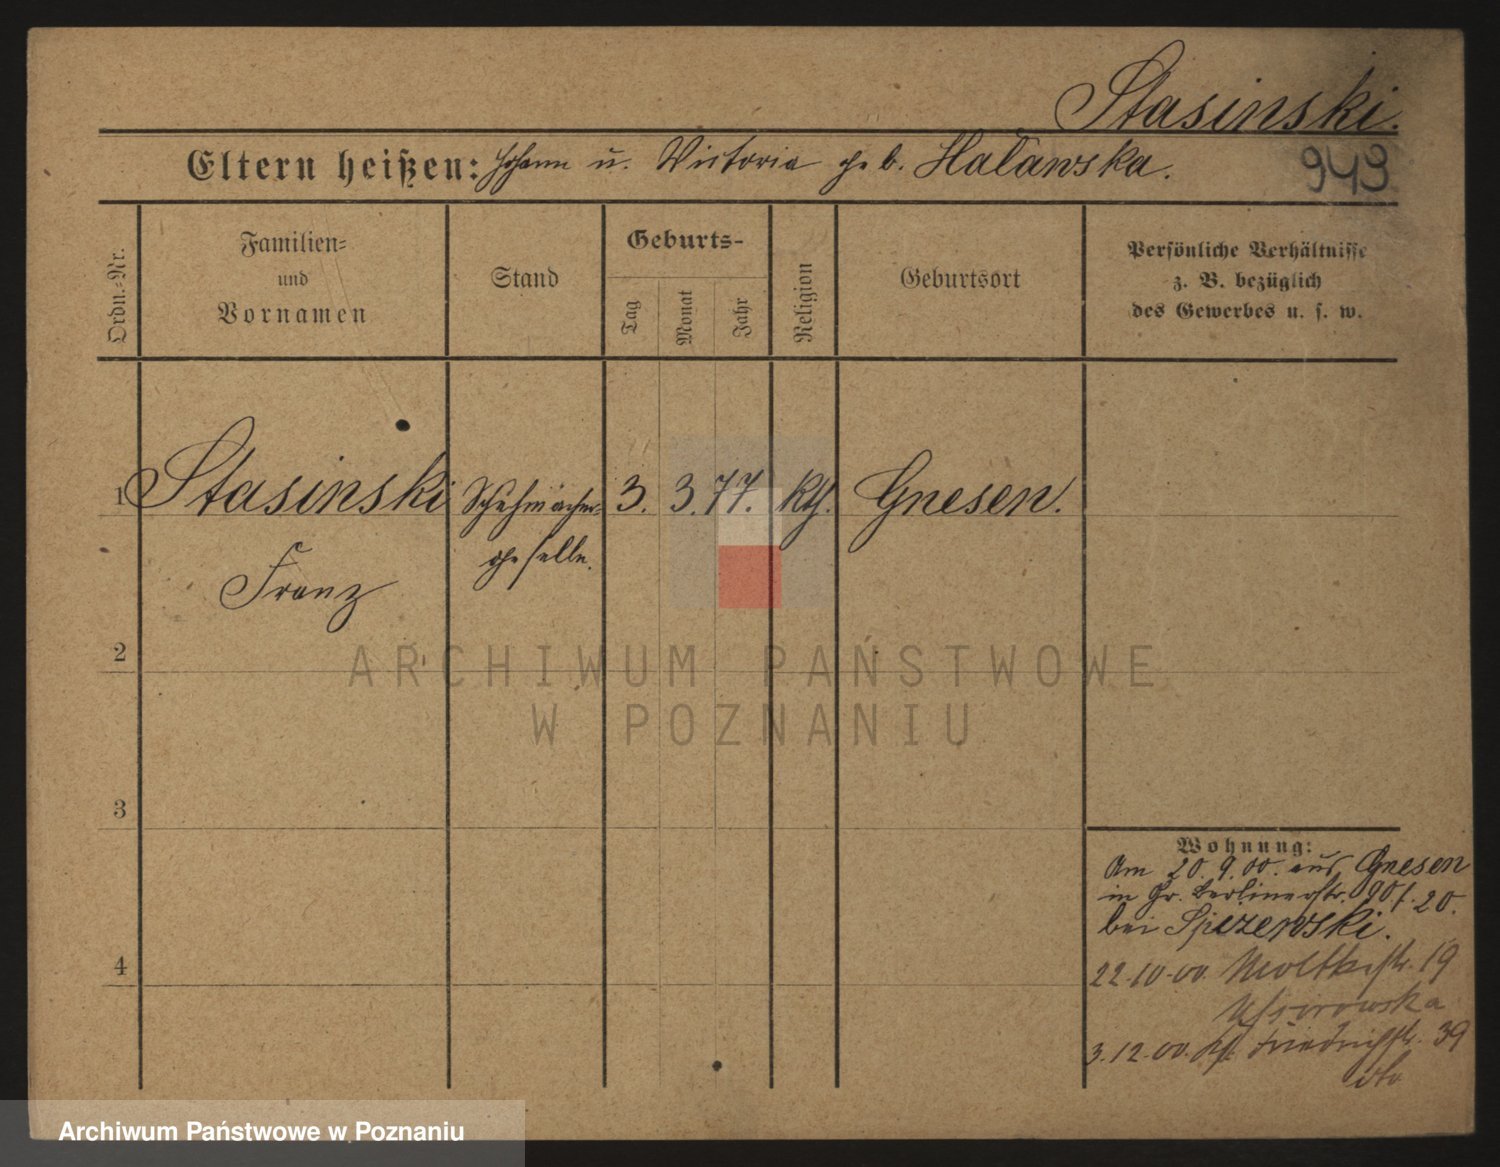 Stasinski.
Eltern heißen: Johann u. Victoria geb. Haławska.
943
Ordn.-Nr.
Familien-
und
Vornamen
Stand
Geburts-
Tag
Monat
Jahr
Religion
Geburtsort
Persönliche Verhältnisse
z. B. bezüglich
des Gewerbes u. s. w.
1 Stasinski Schuhmacher- 3. 3. 77. kth. Gnesen.
Franz geselle.
2
3
4
Wohnung:
Am 20. 9. 00. aus Gnesen
in Gr. Berlinerstr. 90 f. 20.
bei
22.10.00. Moltkestr. 19
3.12.00. Friedrichstr. 39
ARCHIWUM PAŃSTWOWE
W POZNANIU
Archiwum Państwowe w Poznaniu